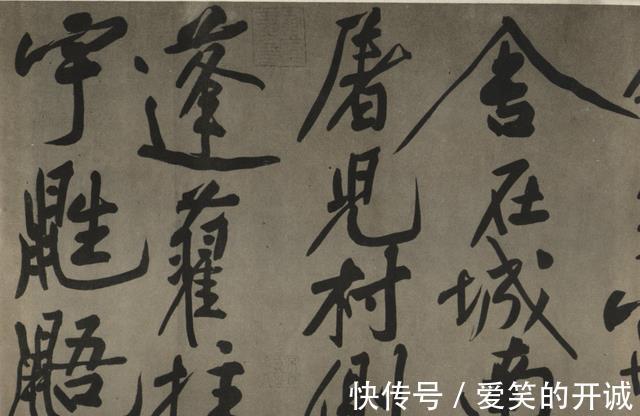 舍在城南
屠兒村側
蓬藋拄
宇鼪鼯
快传号 / 爱笑的开诚